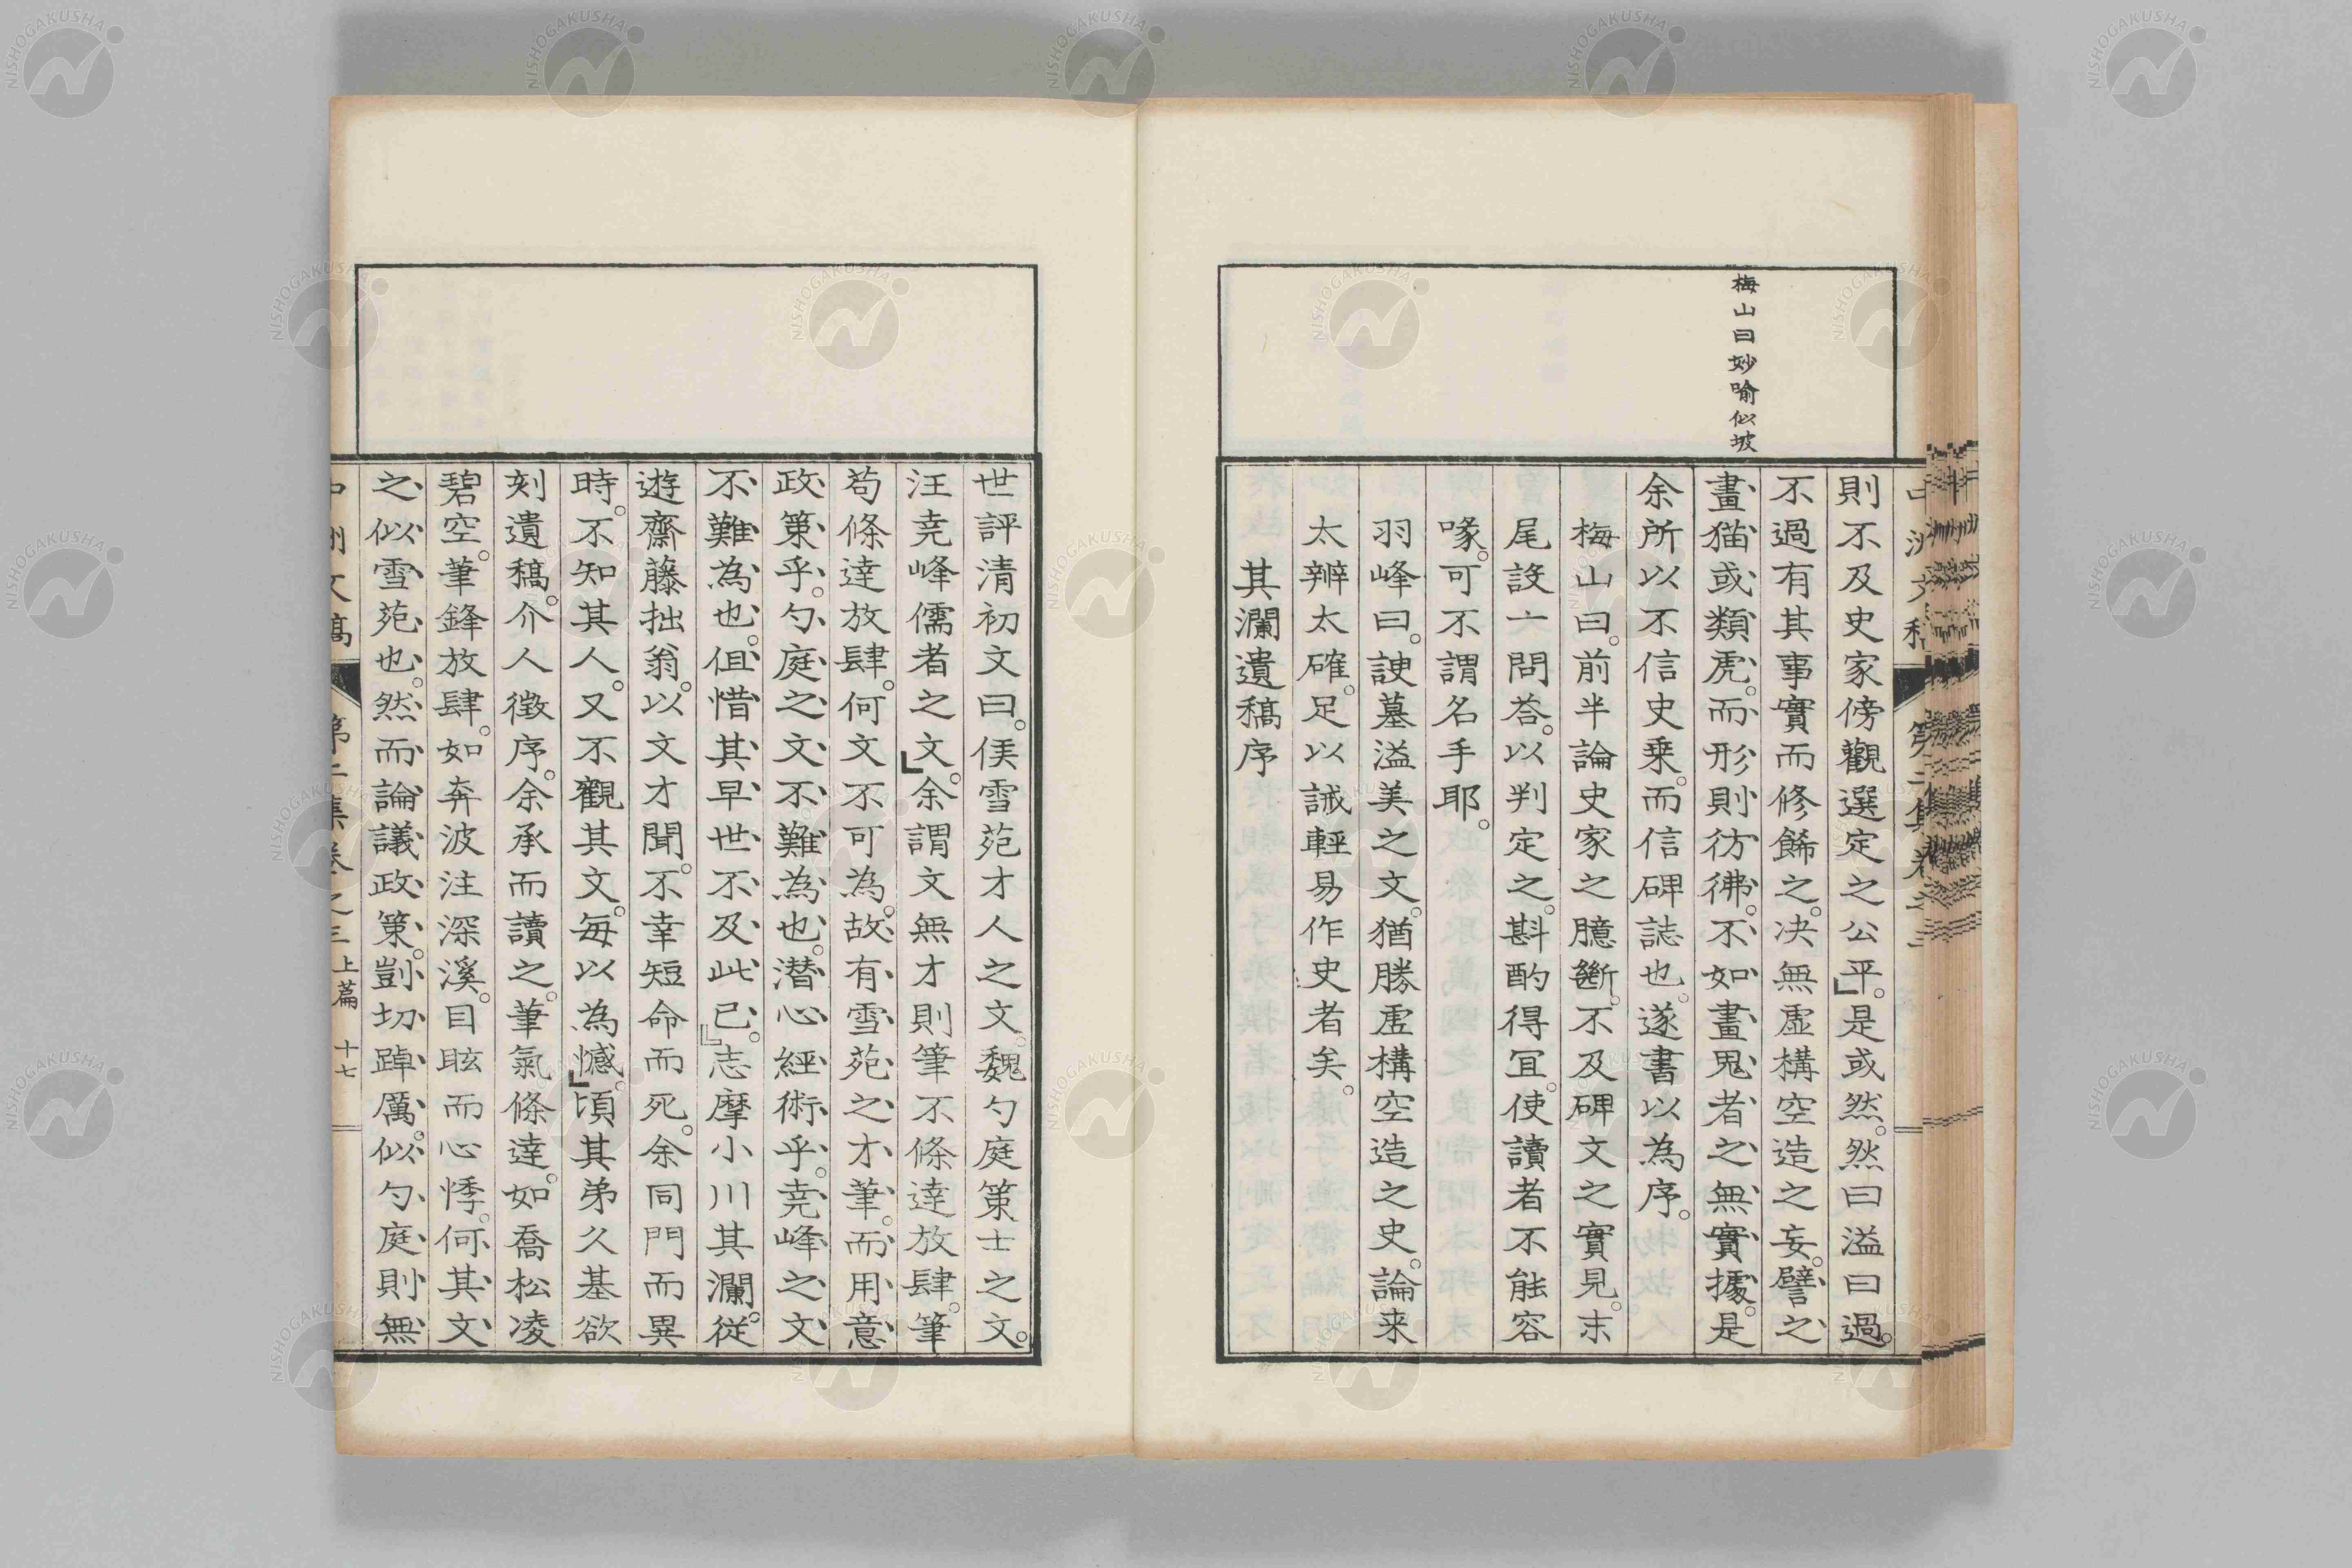 梅山曰妙喻似坡
則不及史家傍觀選定之公平。是或然。然曰溢曰過。
不過有其事實而修餙之。决無虛構空造之妄。譬之
畫猫或類虎。而形則彷彿。不如畫鬼者之無實據。是
余所以不信史乗。而信碑誌也。遂書以為序。
梅山曰。前半論史家之臆斷。不及碑文之實見。末
尾設一問答。以判定之。斟酌得冝。使讀者不能容
喙。可不謂名手耶。
羽峰曰。諛墓溢美之文。猶勝虛構空造之史。論来
太辨太確。足以誡輕易作史者矣。
其瀾遺稿序
世評清初文曰。侯雪苑才人之文。魏勺庭策士之文。
汪尭峰儒者之文。余謂文無才則筆不條達放肆。筆
苟條達放肆。何文不可為。故有雪苑之才筆。而用意
政策乎。勺庭之文不難為也。潜心經術乎。尭峰之文
不難為也。但惜其早世不及此已。志摩小川其瀾。従
遊齋藤拙翁。以文才聞。不幸短命而死。余同門而異
時。不知其人。又不觀其文。毎以為憾。頃其弟久基欲
刻遺稿。介人徴序。余承而讀之。筆氣條達。如喬松凌
碧空。筆鋒放肆。如奔波注深溪。目眩而心悸。何其文
之似雪苑也。然而論議政策。剴切踔厲。似勺庭則無
中洲文稿 第二集卷之三 上篇 十七